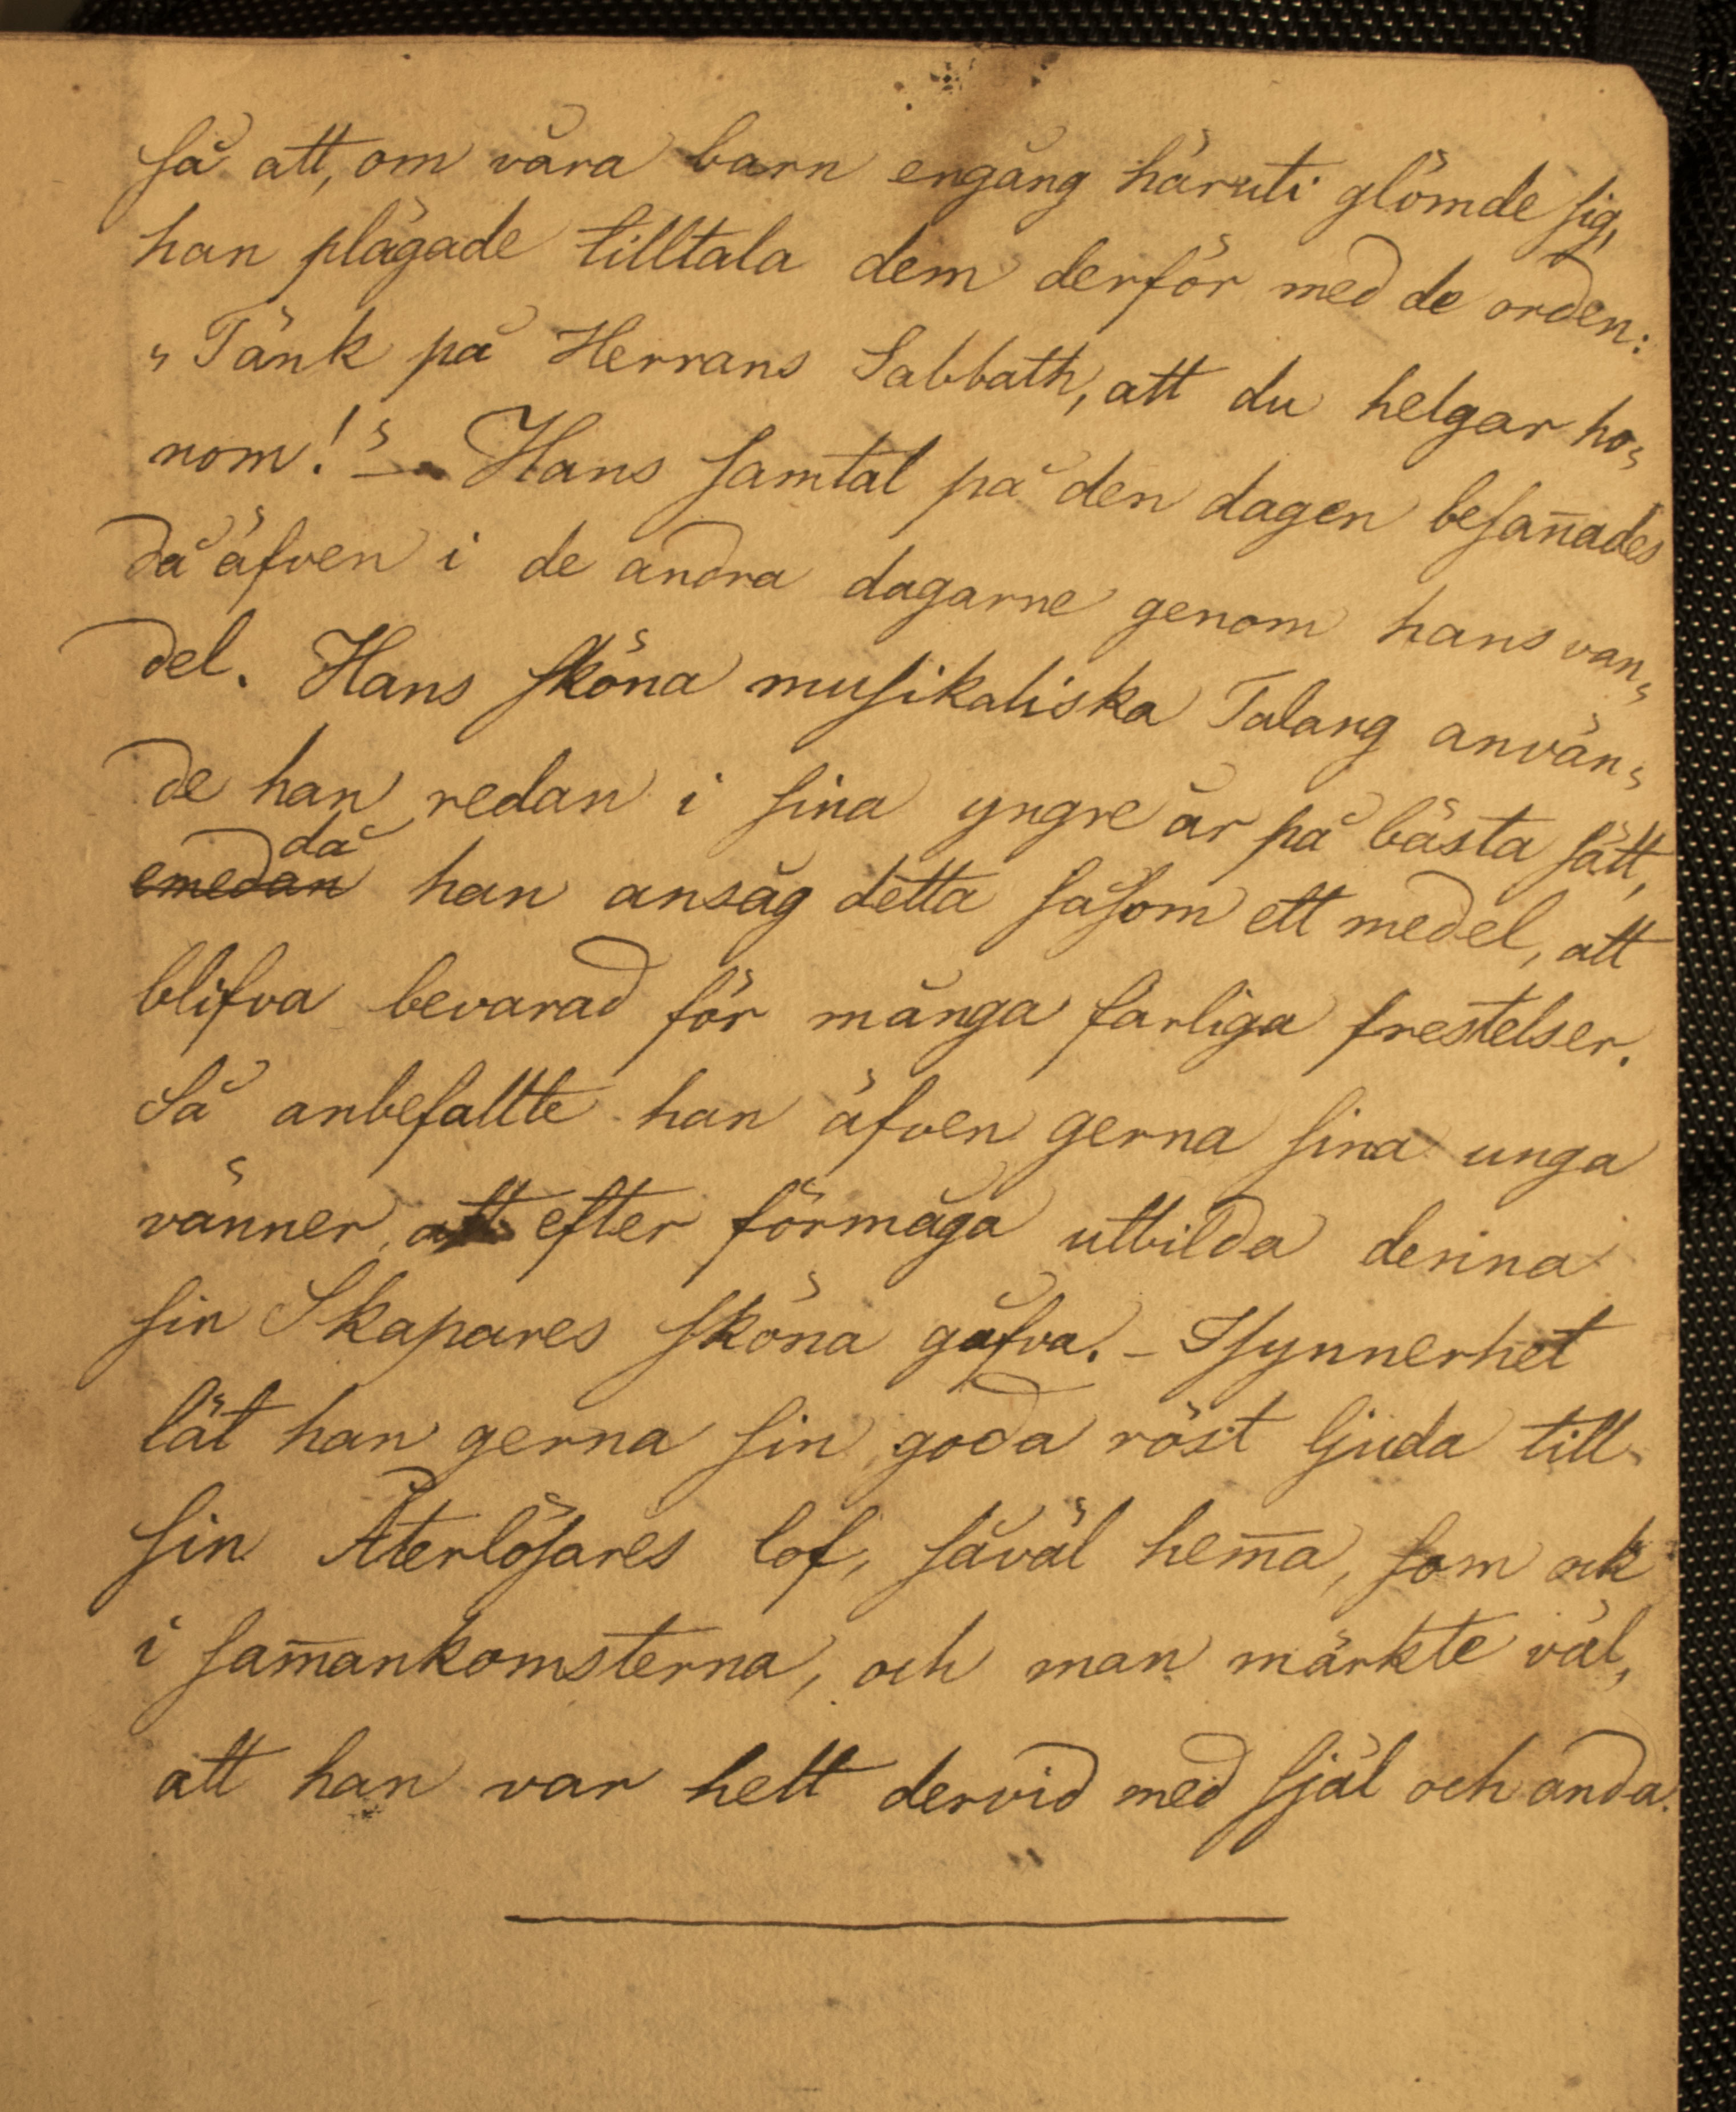 så att, om våra barn engång häruti glömde sig,
han plägade tilltala dem derför med de orden:
„Tänk på Herrans Sabbath, att du helgar ho„
nom!“ — Hans samtal på den dagen besan̄ades
då äfven i de andra dagarne genom hans van„
del. Hans sköna musikaliska Talang använ„
de han redan i sina yngre år på bästa sätt,
då
emedan han ansåg detta såsom ett medel, att
blifva bevarad för många farliga frestelser.
Så anbefallte han äfven gerna sina unga
vänner, att efter förmåga utbilda denna
sin Skapares sköna gåfva. — Isynnerhet
lät han gerna sin goda röst ljuda till
sin Återlösares lof, såväl hem̄a, som ock
i sam̄ankomsterna, och man märkte väl,
att han var helt dervid med själ och anda.